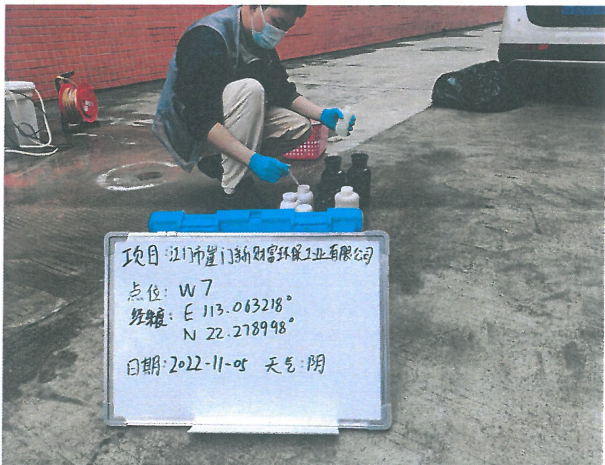 项目:江门市崖门新财富环保工业有限公司
点位: W7
经纬度: E 113.063218°
N 22.278998°
日期:2022-11-05 天气:阴